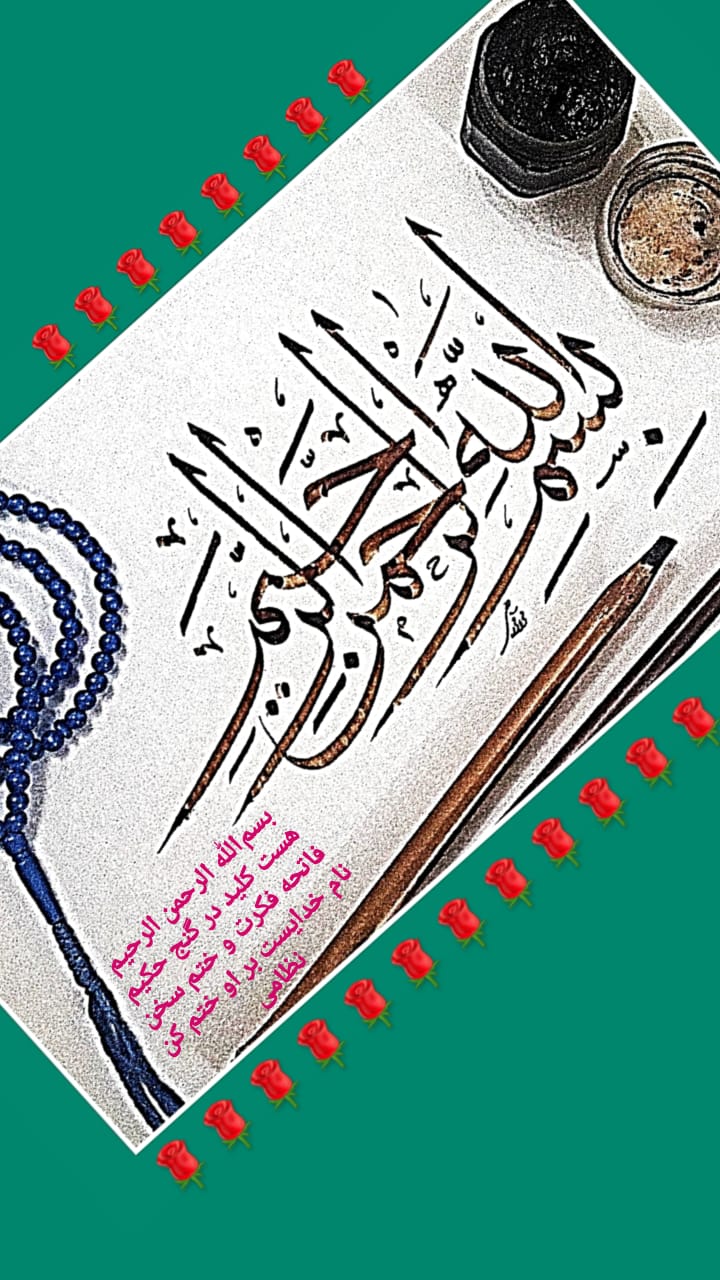 بسم الله الرحمن الرحیم
بسم‌الله الرحمن الرحیم
هست کلید در گنج حکیم
فاتحه فکرت و ختم سخن
نام خدایست بر او ختم کن
نظامی